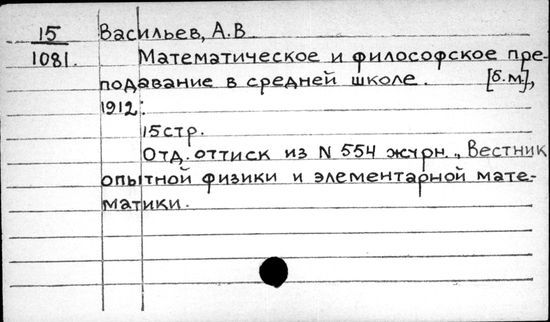 15 Васильев, А.В.
1081. Математическое и философское пре-
подавание в средней школе. [б.м],
1912.
15стр.
Отд. оттиск из N 554 журн. „Вестник
опытной физики и элементарной мате-
матики.